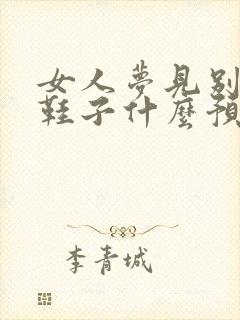 女人夢見別
鞋子什麼預
李青城